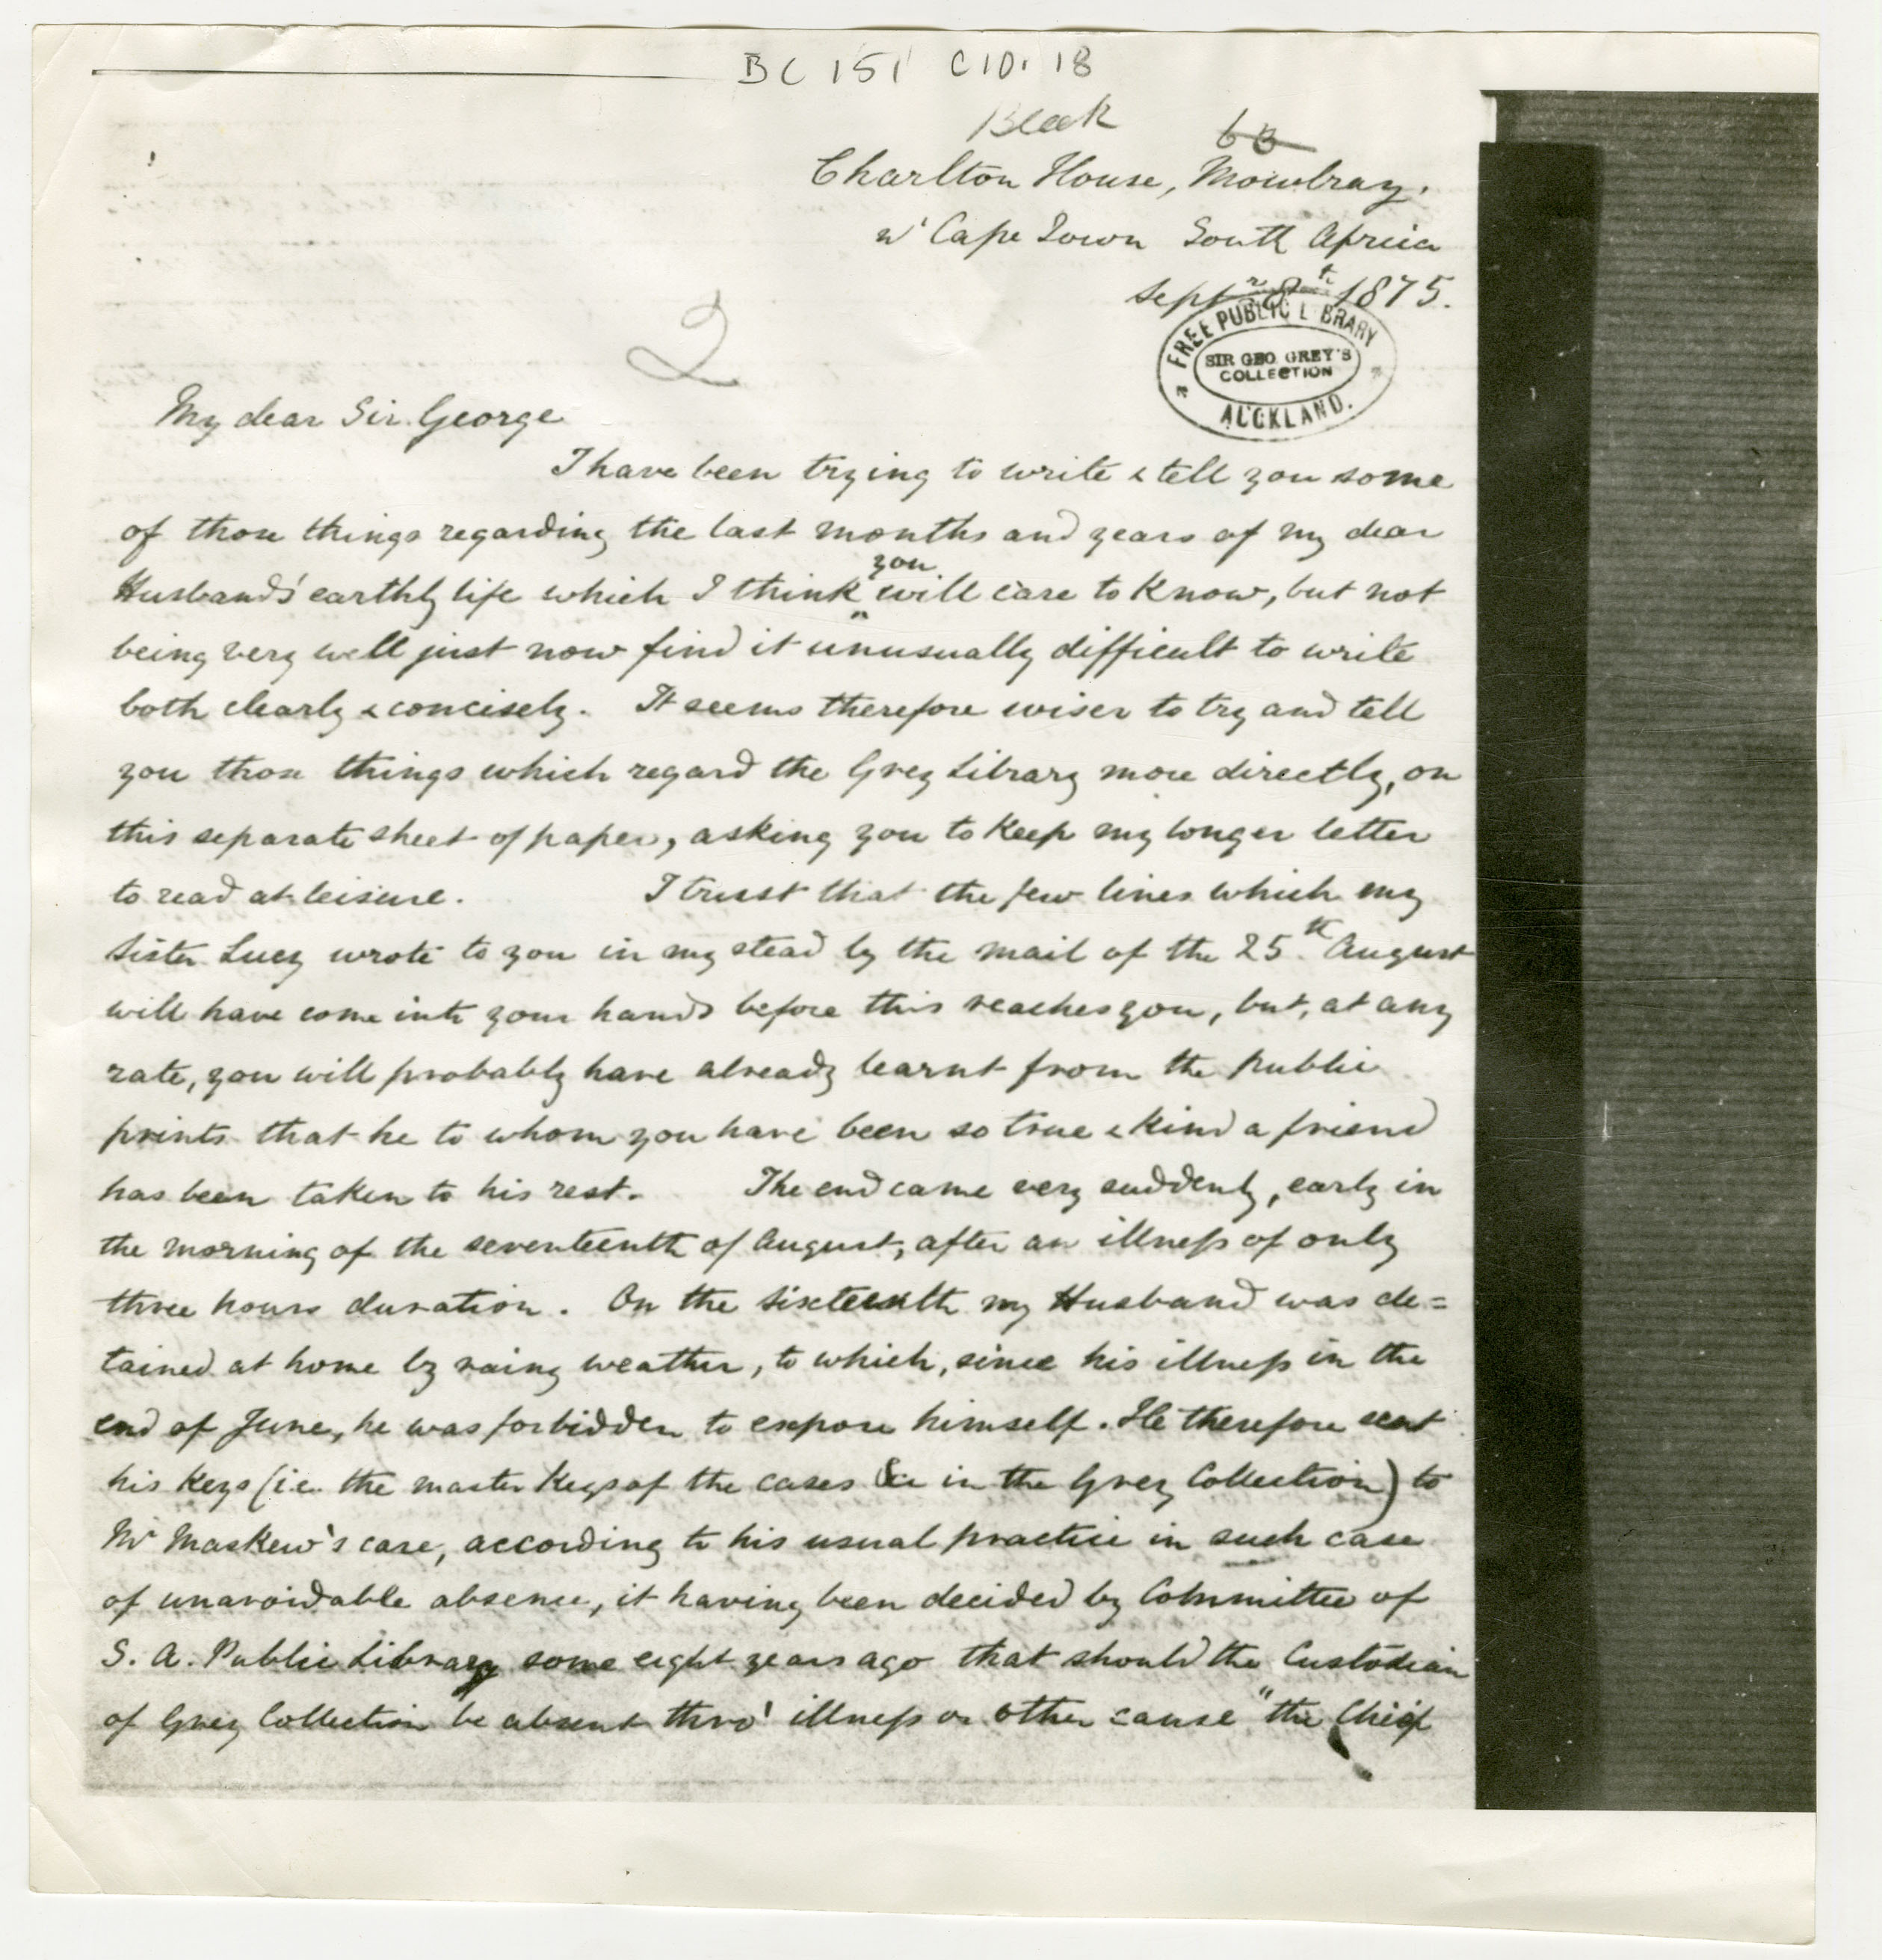 BC 151 C10. 18
Bleek 6B
Charlton House, Mowbray.
nr Cape Town South Africa
Septr 8th 1875.
FREE PUBLIC LIBRARY
SIR GEO. GREY'S
COLLECTION
AUCKLAND.
2
My dear Sir George
I have been trying to write & tell you some
of those things regarding the last months and years of my dear
Husband's earthly life which I think you will care to know, but not
being very well just now find it unusually difficult to write
both clearly & concisely. It seems therefore wiser to try and tell
you those things which regard the Grey Library more directly, on
this separate sheet of paper, asking you to keep my longer letter
to read at leisure. I trust that the few lines which my
Sister Lucy wrote to you in my stead by the mail of the 25th August
will have come into your hands before this reaches you, but, at any
rate, you will probably have already learnt from the public
prints that he to whom you have been so true & kind a friend
has been taken to his rest. The end came very suddenly, early in
the morning of the seventeenth of August, after an illness of only
three hours duration. On the sixteenth my Husband was de=
tained at home by rainy weather, to which, since his illness in the
end of June, he was forbidden to expose himself. He therefore sent
his keys (i.e. the master keys of the cases &c in the Grey Collection) to
Mr Maskew's care, according to his usual practice in such case
of unavoidable absence, it having been decided by Committee of
S. A. Public Library some eight years ago that should the Custodian
of Grey Collection be absent thro' illness or other cause "the Chief